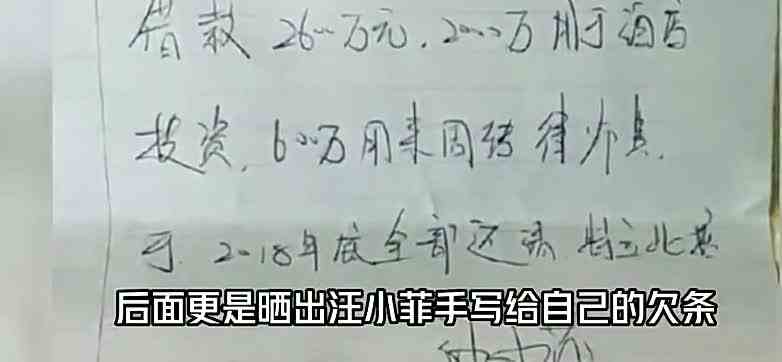 借款2600万元,2000万用于酒店
投资,600万用来周转律师费.
于2018年底全部还清.特立此
后面更是晒出汪小菲手写给自己的欠条